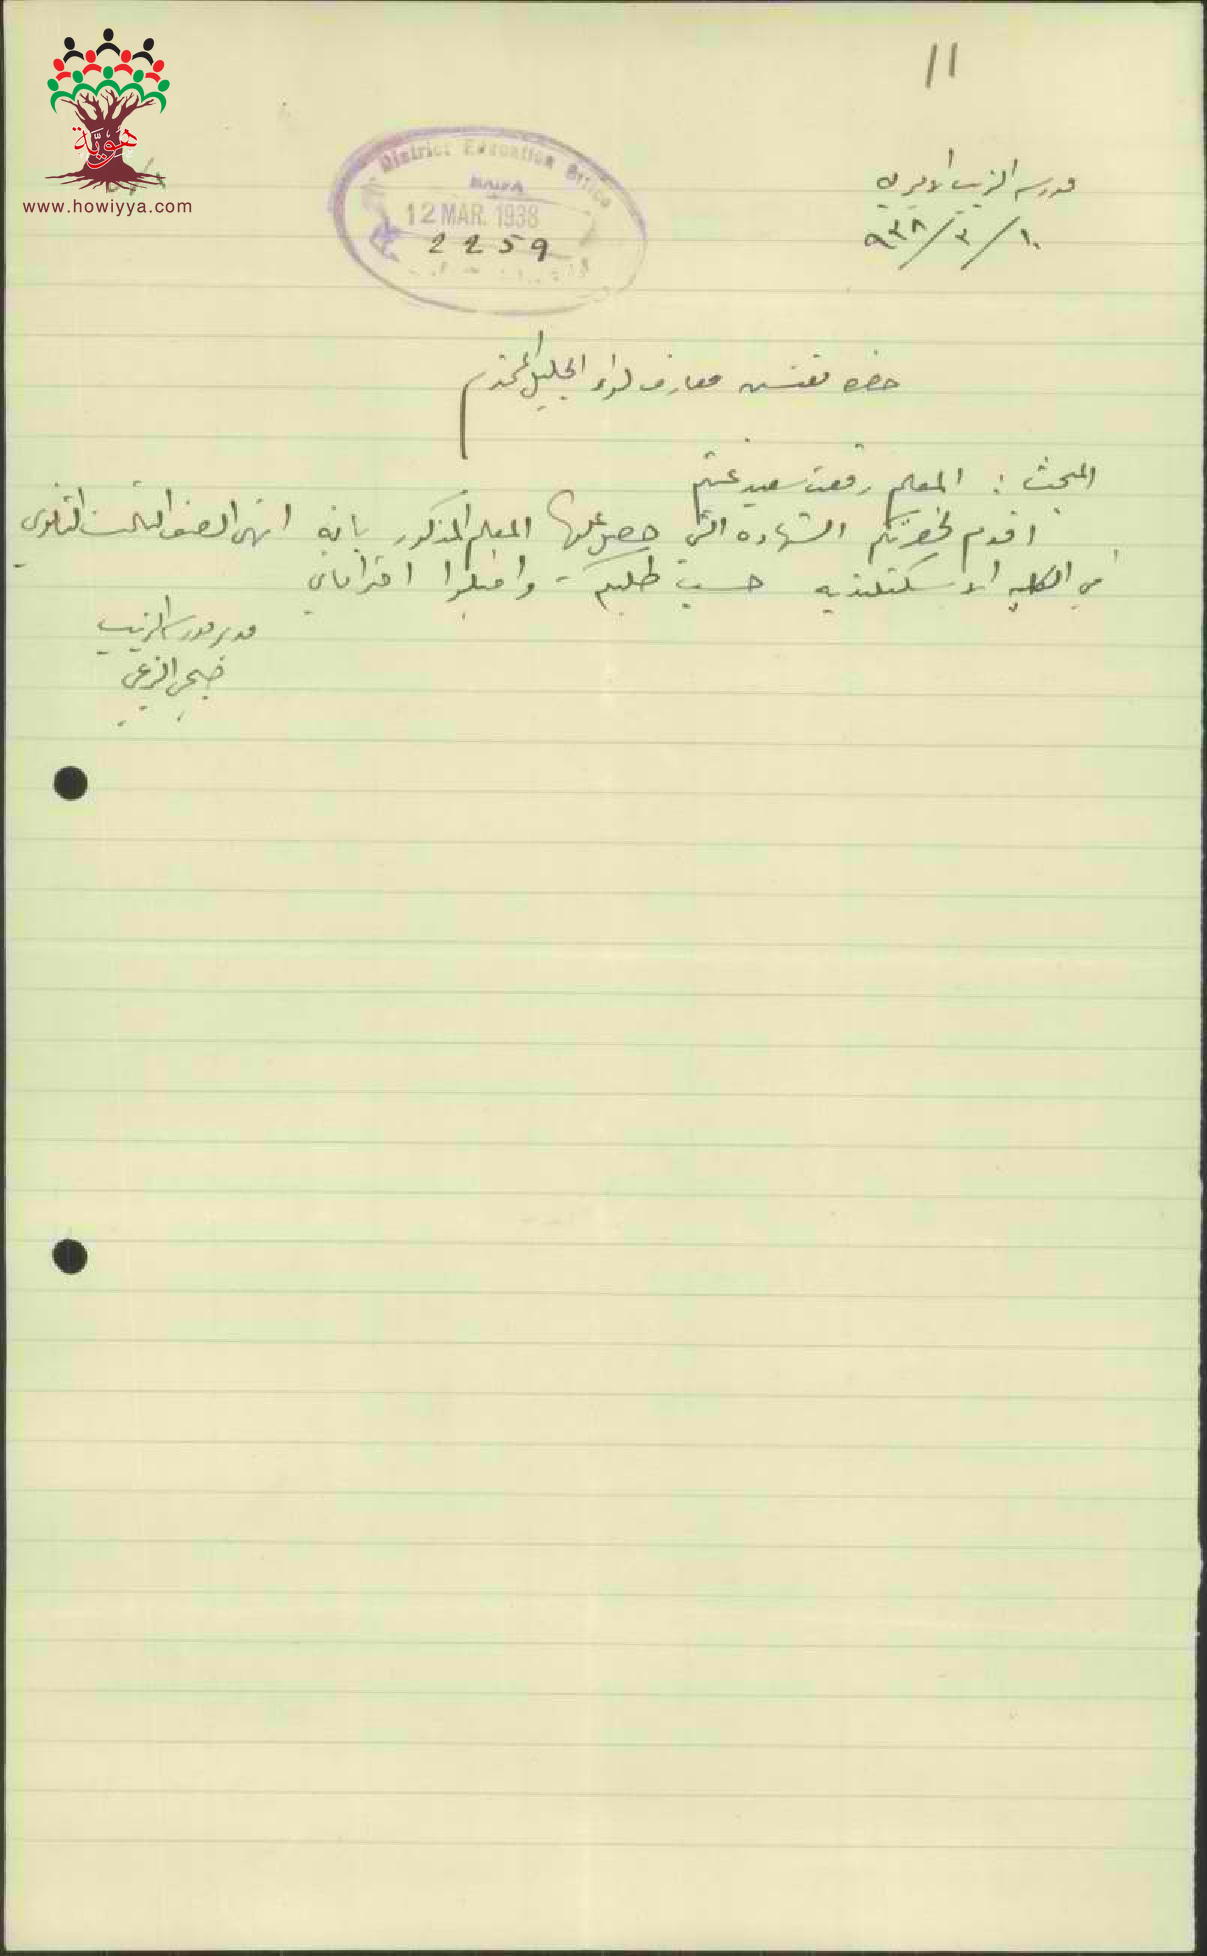 11
هويّة
www.howiyya.com
District Education Office
HAIFA
12 MAR. 1938
2259
مدرسة الزيب الاميرية
١٠/٣/٩٣٨
حضرة مفتش معارف لواء الجليل المحترم
المبحث : المعلم رفعت سعيد غنيم
اقدم لحضرتكم الشهاده التي حصل عليها المعلم المذكور بانه انهى الصف الثالث الثانوي
في الكليه الاسكتلنديه حسب طلبكم واقبلوا احترامي
مدير مدرسة الزيب